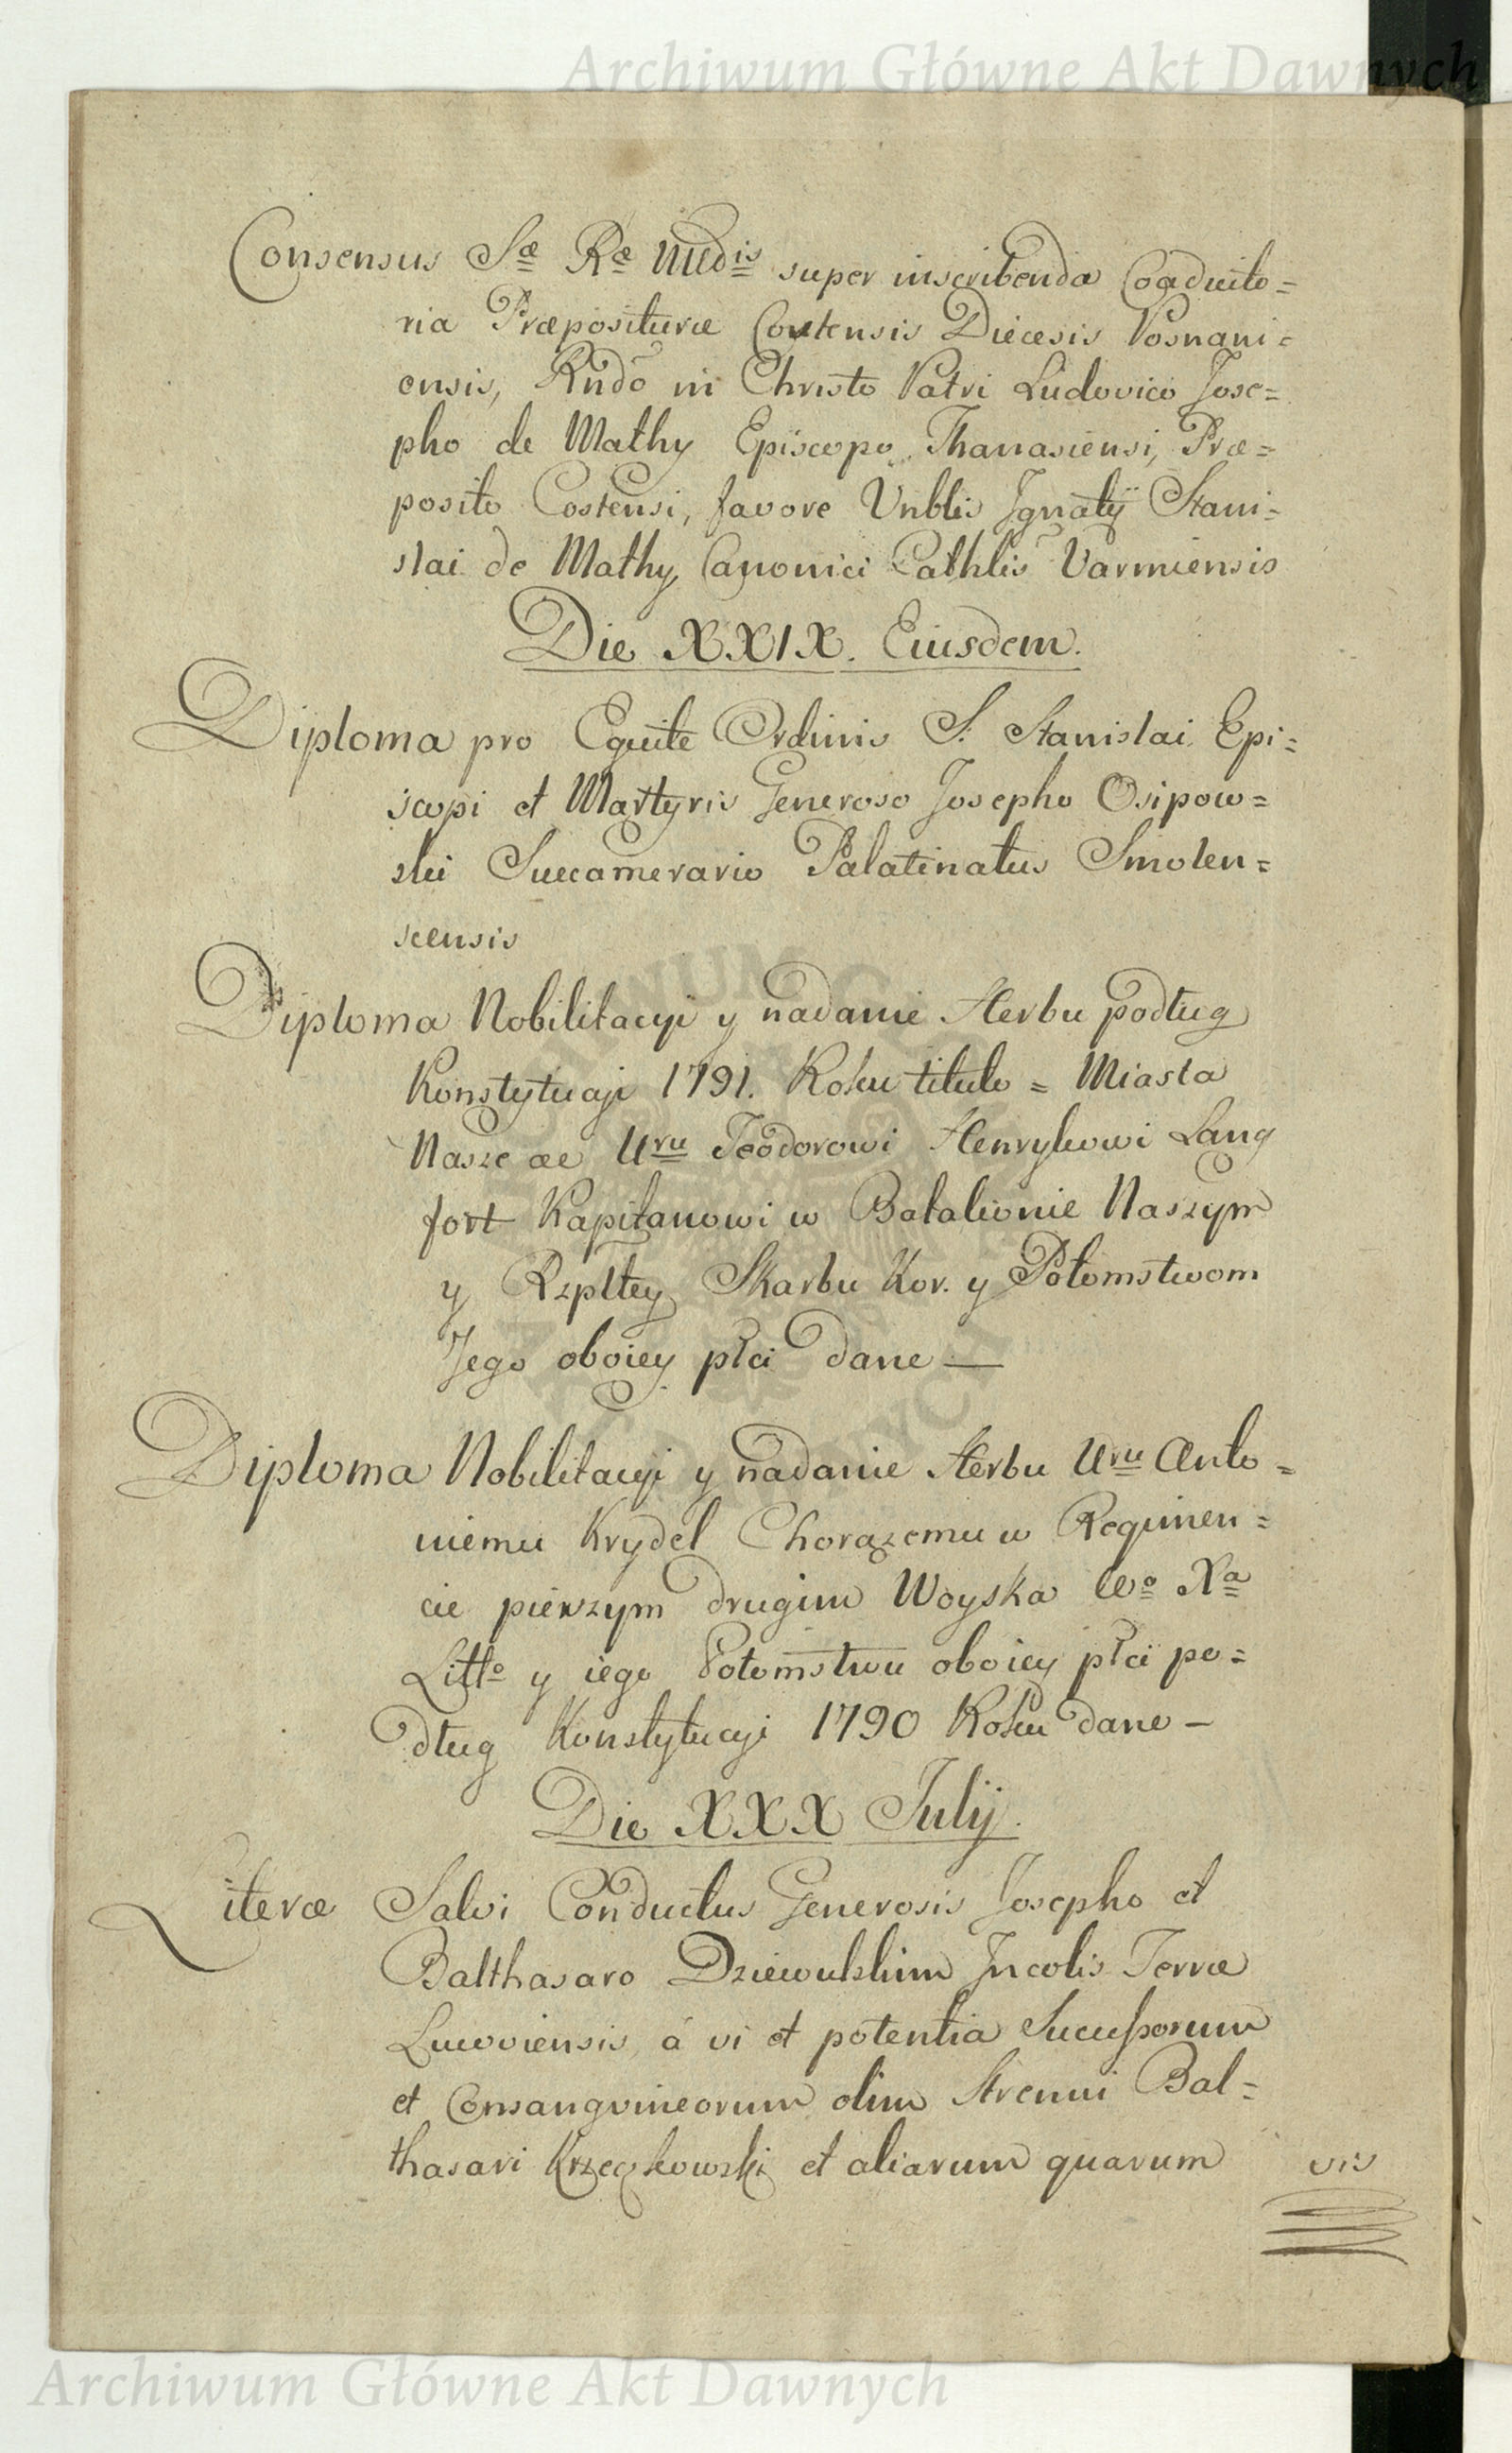 Archiwum Główne Akt Dawnych
Consensus Sæ Ræ Mtis super inscribenda Coadiuto=
ria Præposituræ Costensis Diecesis Posnani=
ensis, Rndo in Christo Patri Ludovico Jose=
pho de Mathy Episcopo Thanasiensi, Præ=
posito Costensi, favore Vnblis Ignatÿ Stani=
slai de Mathy Canonici Cathlis Varmiensis
Die XXIX. Eiusdem.
Diploma pro Equite Ordinis S. Stanislai Epi=
scopi et Martyris Generoso Josepho Osipow=
ski Succamerario Palatinatus Smolen=
scensis
Diploma Nobilitacyi y nadanie Herbu podług
Konstytucyi 1791. Roku titulo = Miasta
Nasze ae Uru Teodorowi Henrykowi Lang
fort Kapitanowi w Batalionie Naszym
y Rzpltey Skarbu Kor. y Potomstwom
Jego oboiey płci dane —
Diploma Nobilitacyi y nadanie Herbu Uru Anto=
niemu Krydel Chorążemu w Regimen=
cie pieszym drugim Woyska Wo Xa
Litto y iego Potomstwu oboiey płci po=
dług Konstytucyi 1790 Roku dane —
Die XXX Julij.
Literæ Salvi Conductus Generosis Josepho et
Balthasaro Dziewulskim Incolis Terræ
Lucoviensis, á vi et potentia Succeſsorum
et Consangvineorum olim Strenui Bal=
thasari Krzeczkowski et aliarum quarum
vis
Archiwum Główne Akt Dawnych